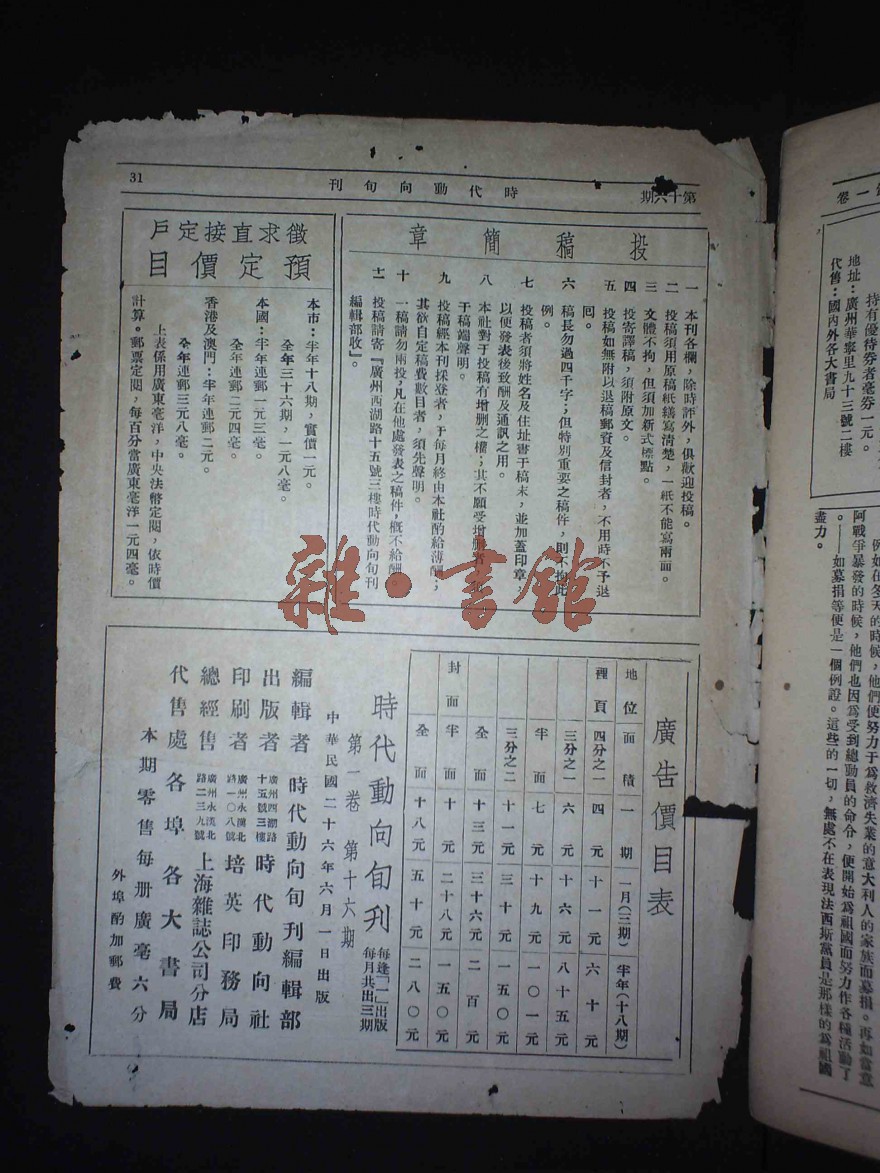 第十六期
時代動向旬刊
31
投稿簡章
一 本刊各欄，除時評外，俱歡迎投稿。
二 投稿須用原稿紙繕寫清楚，一紙不能寫兩面。
三 文體不拘，但須加新式標點。
四 投寄譯稿，須附原文。
五 投稿如無附以退稿郵資及信封者，不用時不予退
回。
六 稿長勿過四千字；但特別重要之稿件，則不拘此
例。
七 投稿者須將姓名及住址書于稿末，並加蓋印章，
以便發表後致酬及通訊之用。
八 本社對于投稿有增删之權；其不願受增删者
于稿端聲明。
九 投稿經本刊採登者，于每月終由本社酌給薄酬，
其欲自定稿費數目者，須先聲明。
十 一稿請勿兩投，凡在他處發表之稿件，概不給酬。
十一 投稿請寄『廣州西湖路十五號三樓時代動向旬刊
編輯部收』。
徵求直接定戶
預定價目
本市：半年十八期，實價一元。
全年三十六期，一元八毫。
本國：半年連郵一元三毫。
全年連郵二元四毫。
香港及澳門：半年連郵二元。
全年連郵三元八毫。
上表係用廣東毫洋，中央法幣定閱，依時價
計算。郵票定閱，每百分當廣東毫洋一元四毫。
廣告價目表
地位 面積 一期 一月(三期) 半年(十八期)
裡頁 四分之一 四元 十一元 六十元
三分之一 六元 十六元 八十五元
半面 七元 十九元 一〇一元
三分之二 十一元 三十元 一五〇元
全面 十三元 三十六元 二百元
封面 半面 十元 二十八元 一五〇元
全面 十八元 五十元 二八〇元
時代動向旬刊
每逢「一」出版
每月共出三期
第一卷 第十六期
中華民國二十六年六月一日出版
編輯者 時代動向旬刊編輯部
出版者 廣州西湖路十五號三樓 時代動向社
印刷者 廣州永漢北路一〇八號 培英印務局
總經售 廣州永漢北路二三九號 上海雜誌公司分店
代售處 各埠各大書局
本期零售每册廣毫六分
外埠酌加郵費
雜·書館
一卷
持有優待券者毫券一元。
地址：廣州華寧里九十三號二樓
代售：國內外各大書局
例如在冬天的時候，他們便努力于爲救濟失業的意大利人的家族而募捐。再如當意
阿戰爭暴發的時候，他們也因爲受到總動員的命令，便開始爲祖國而努力作各種活動了
——如募捐等便是一個例證。這些的一切，無處不在表現法西斯黨員是那樣的爲祖國
盡力。